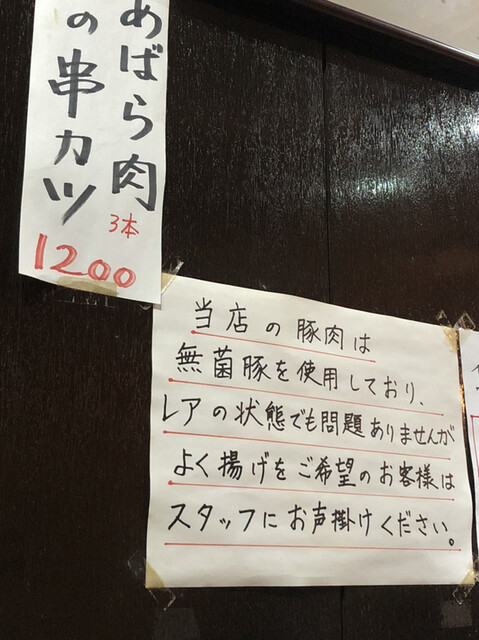 あばら肉
の串カツ
3本
1200
当店の豚肉は
無菌豚を使用しており、
レアの状態でも問題ありませんが
よく揚げをご希望のお客様は
スタッフにお声掛けください。